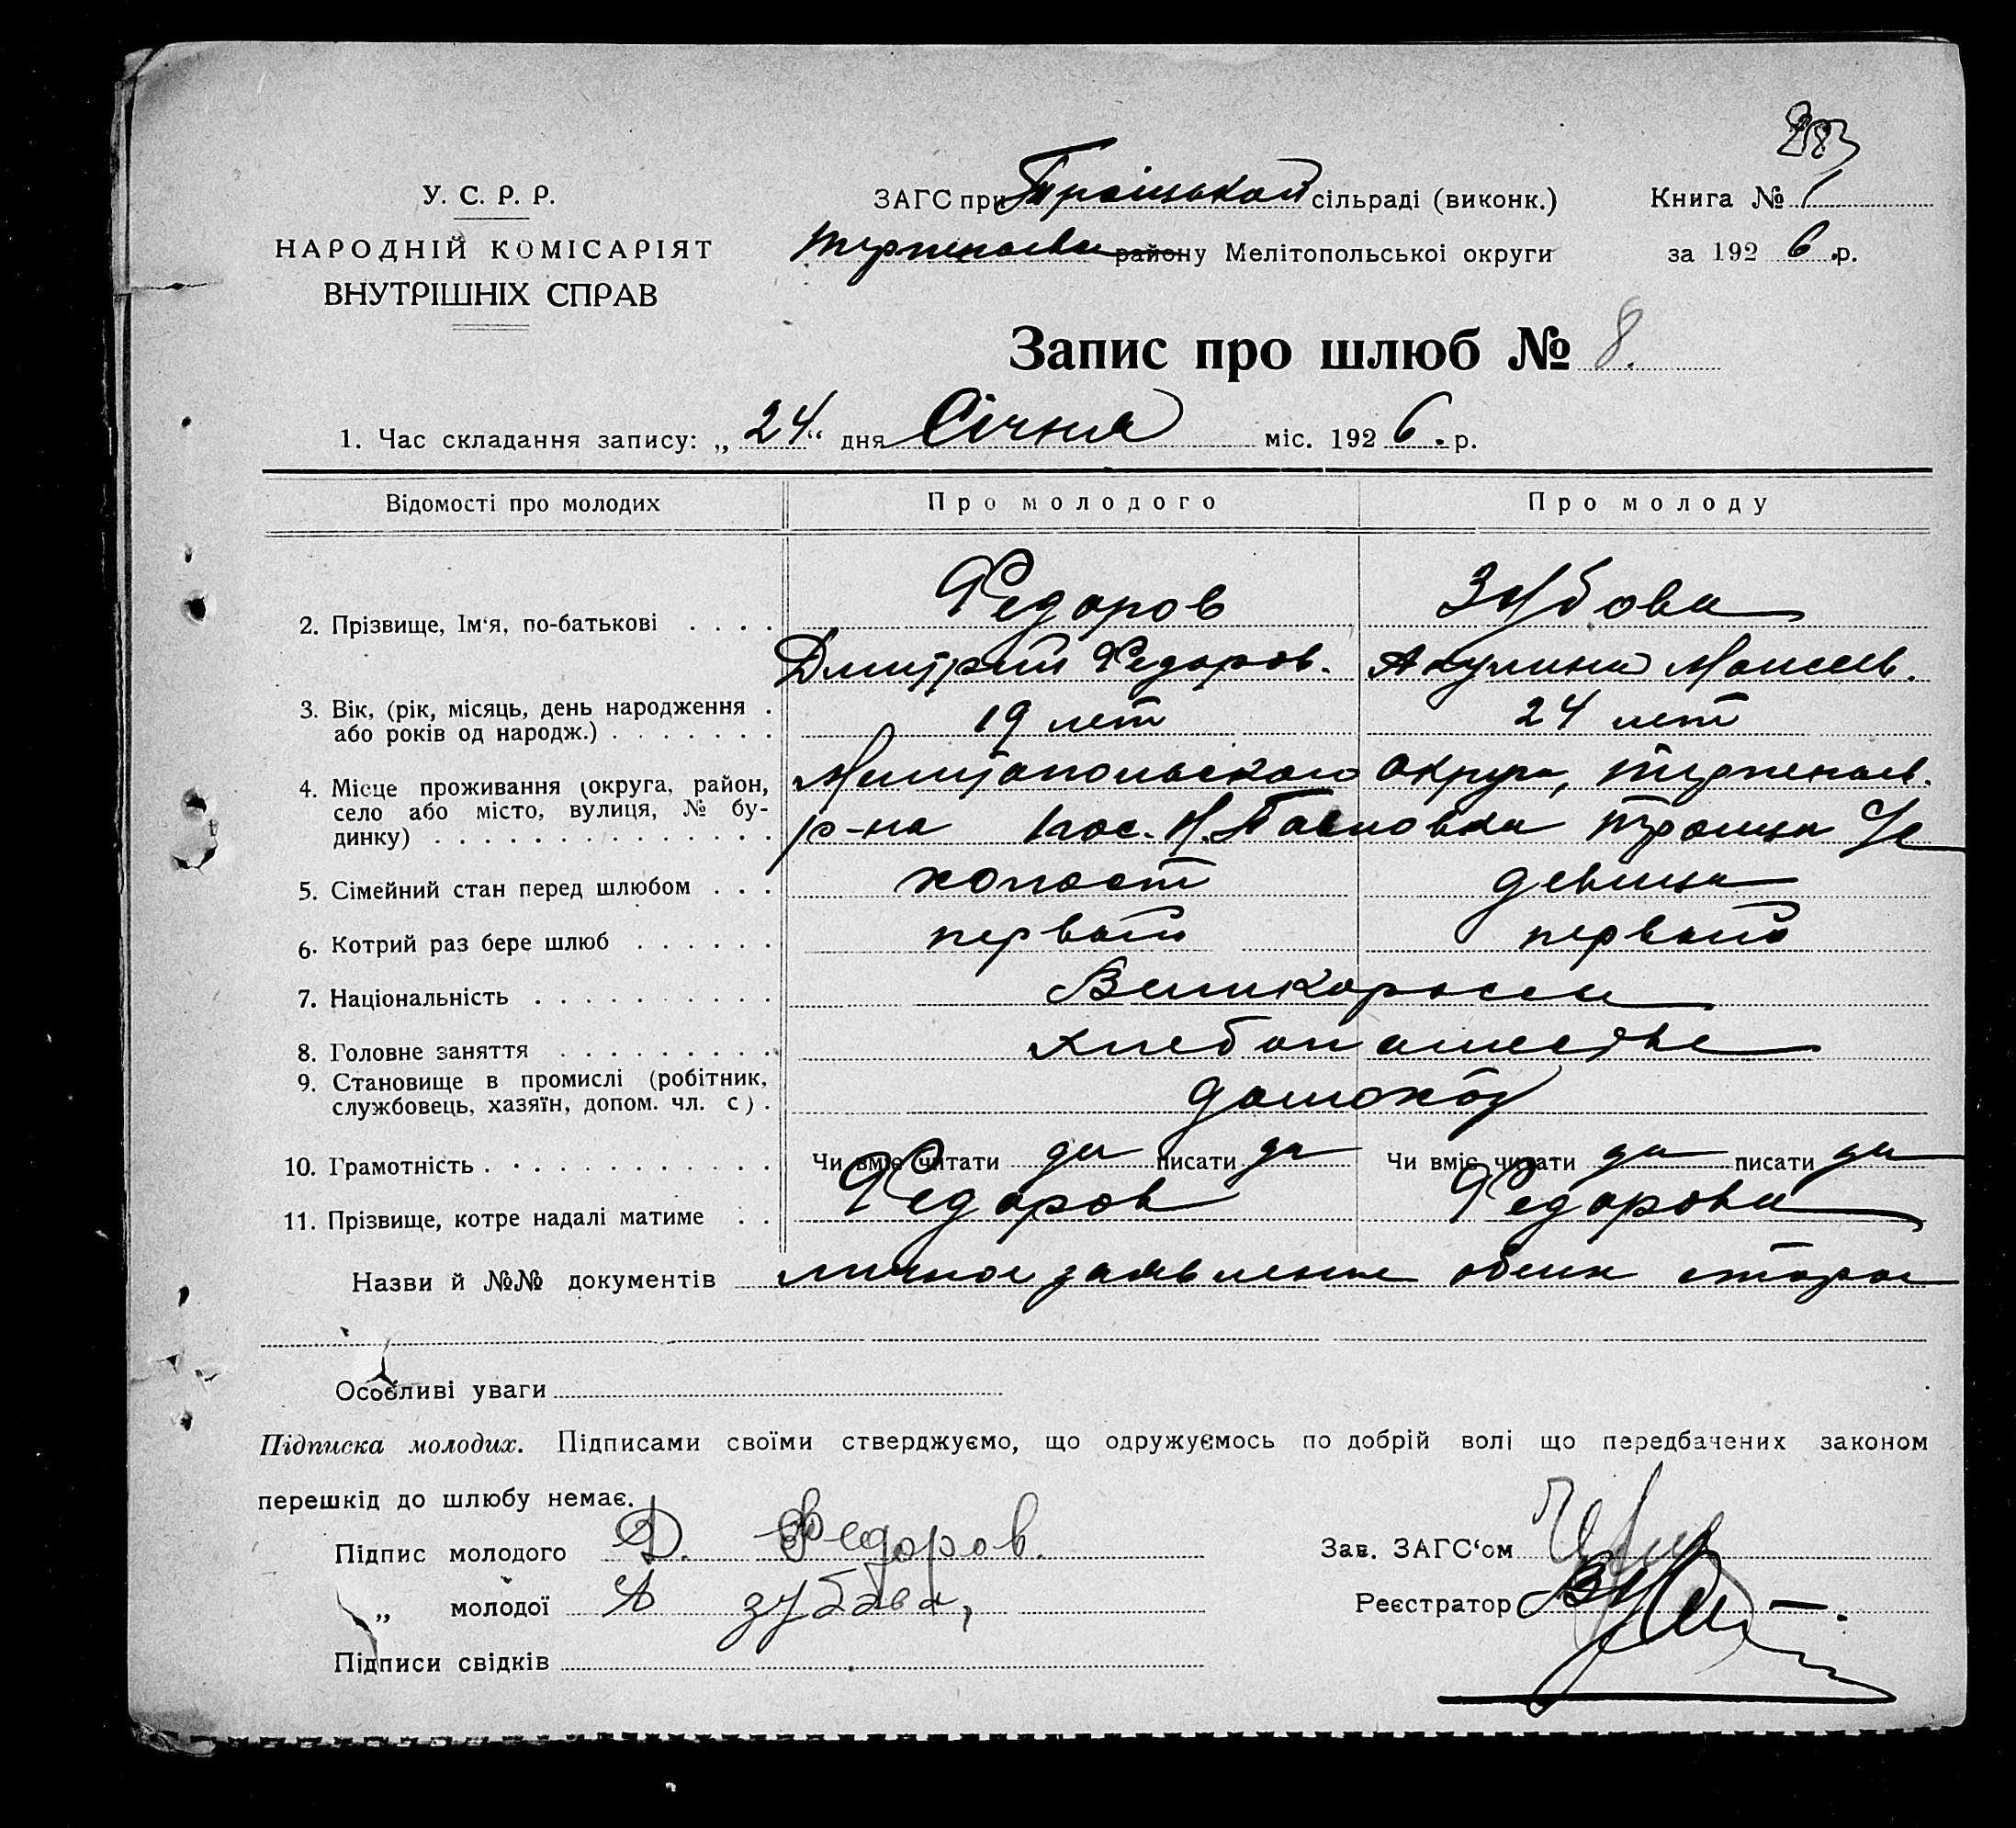 283
У. С. Р. Р.
НАРОДНІЙ КОМІСАРІЯТ
ВНУТРІШНІХ СПРАВ
ЗАГС при Троіцькой сільраді (виконк.)
Терпеньев району Мелітопольськоі округи
Книга № 1
за 192 6 .р.
Запис про шлюб № 8.
1. Час складання запису: „ 24 “ дня Січня міс. 192 6 . р.
Відомості про молодих Про молодого Про молоду
2. Прізвище, Ім‘я, по-батькові . . . . Федоров Зубова
Дмитрий Федоров. Акулина Моисеев.
3. Вік, (рік, місяць, день народження .
або років од народж.) . . . . . . . 19 лет 24 лет
4. Місце проживання (округа, район, Мелитопольского округа, терпеньев.
село або місто, вулиця, № бу-
динку) . . . . . . . . . . . . . . р-на пос. Н. Павловка Троицы
5. Сімейний стан перед шлюбом . . . холост девица
6. Котрий раз бере шлюб . . . . . . первый первый
7. Національність . . . . . . . . . . Великороссы
8. Головне заняття . . . . . . . . . хлебопашество
9. Становище в промислі (робітник,
службовець, хазяїн, допом. чл. с) . домохоз
10. Грамотність . . . . . . . . . . . . . Чи вміє читати да писати да Чи вміє читати да писати да
11. Прізвище, котре надалі матиме . . Федоров Федорова
Назви й №№ документів личное заявление обеих сторон
Особливі уваги
Підписка молодих. Підписами своїми стверджуємо, що одружуємось по добрій волі що передбачених законом
перешкід до шлюбу немає.
Підпис молодого Д. Федоров. Зав. ЗАГС‘ом
„ молодої А зубава, Реєстратор
Підписи свідків